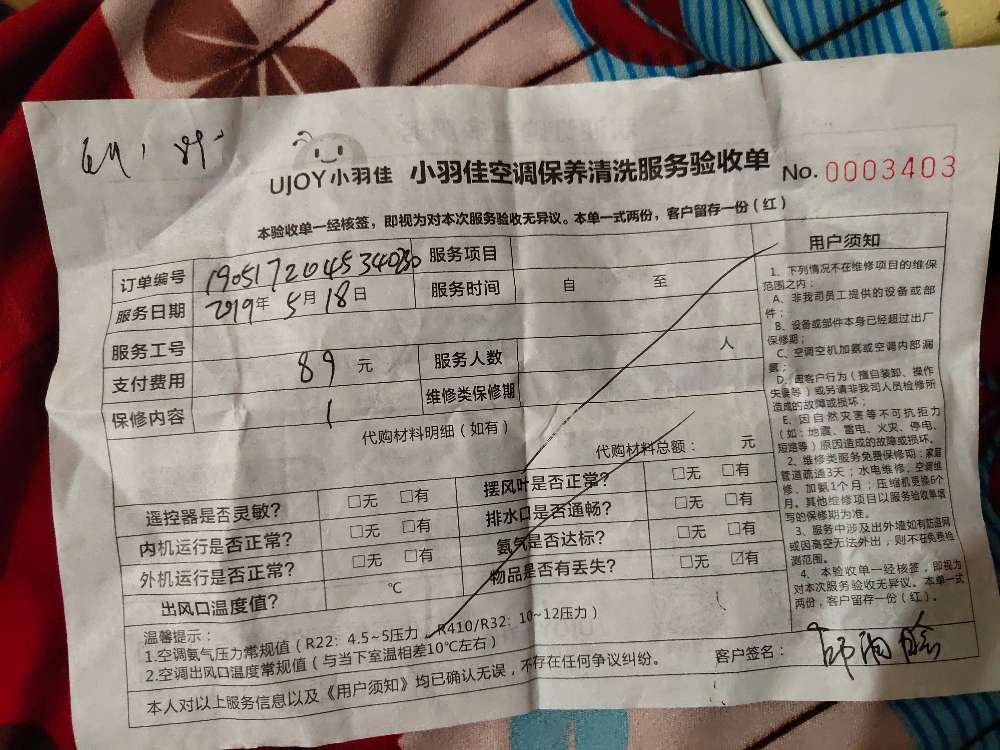 UJOY小羽佳 小羽佳空调保养清洗服务验收单 No.0003403
本验收单一经核签，即视为对本次服务验收无异议。本单一式两份，客户留存一份（红）
订单编号 服务项目
服务日期 2019年5月18日 服务时间 自 至
服务工号
支付费用 89 元 服务人数 人
保修内容 维修类保修期
代购材料明细（如有）
代购材料总额： 元
遥控器是否灵敏？ □无 □有 摆风叶是否正常？ □无 □有
内机运行是否正常？ □无 □有 排水口是否通畅？ □无 □有
外机运行是否正常？ □无 □有 氨气是否达标？ □无 □有
出风口温度值？ ℃ 物品是否有丢失？ □无 ☑有
温馨提示：
1.空调氨气压力常规值（R22：4.5~5压力，R410/R32：10~12压力）
2.空调出风口温度常规值（与当下室温相差10℃左右）
本人对以上服务信息以及《用户须知》均已确认无误，不存在任何争议纠纷。 客户签名：
用户须知
1、下列情况不在维修项目的维保
范围之内：
A、非我司员工提供的设备或部
件；
B、设备或部件本身已经超过出厂
保修期；
C、空调空机加氨或空调内部漏
氨；
D、因客户行为（擅自装卸、操作
失误等）或另请非我司人员检修所
造成的故障或损坏；
E、因自然灾害等不可抗拒力
（如：地震、雷电、火灾、停电、
短路等）原因造成的故障或损坏。
2、维修类服务免费保修期：家庭
管道疏通3天；水电维修、空调维
修、加氨1个月；压缩机更换6个
月。其他维修项目以服务验收单填
写的保修期为准。
3、服务中涉及出外墙如有防盗网
或因高空无法外出，则不在免费检
测范围。
4、本验收单一经核签，即视为
对本次服务验收无异议。本单一式
两份，客户留存一份（红）。